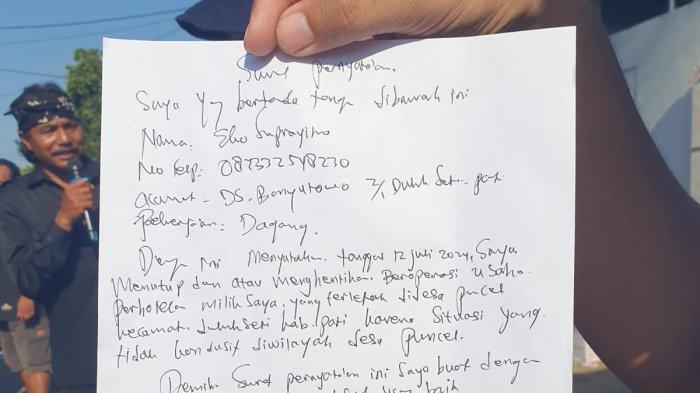 Surat pernyataan.
Saya yg bertanda tangan dibawah ini
Nama: Eko Suprayitno
No telp: 087332548230
Alamat: DS. Banyutowo 2/1 Dukuh Seti - pati
Pekerjaan: Dagang.
Dengan ini Menyatakan. tanggal 12 juli 2024, Saya.
Menutup dan atau menghentikan. Beroperasi usaha.
Perhotelan milik saya. yang terletak didesa puncel
kecamat. dukuhseti kab. pati karena Situasi yang.
tidak kondusif diwilayah desa puncel.
Demikian Surat pernyataan ini Saya buat dengan